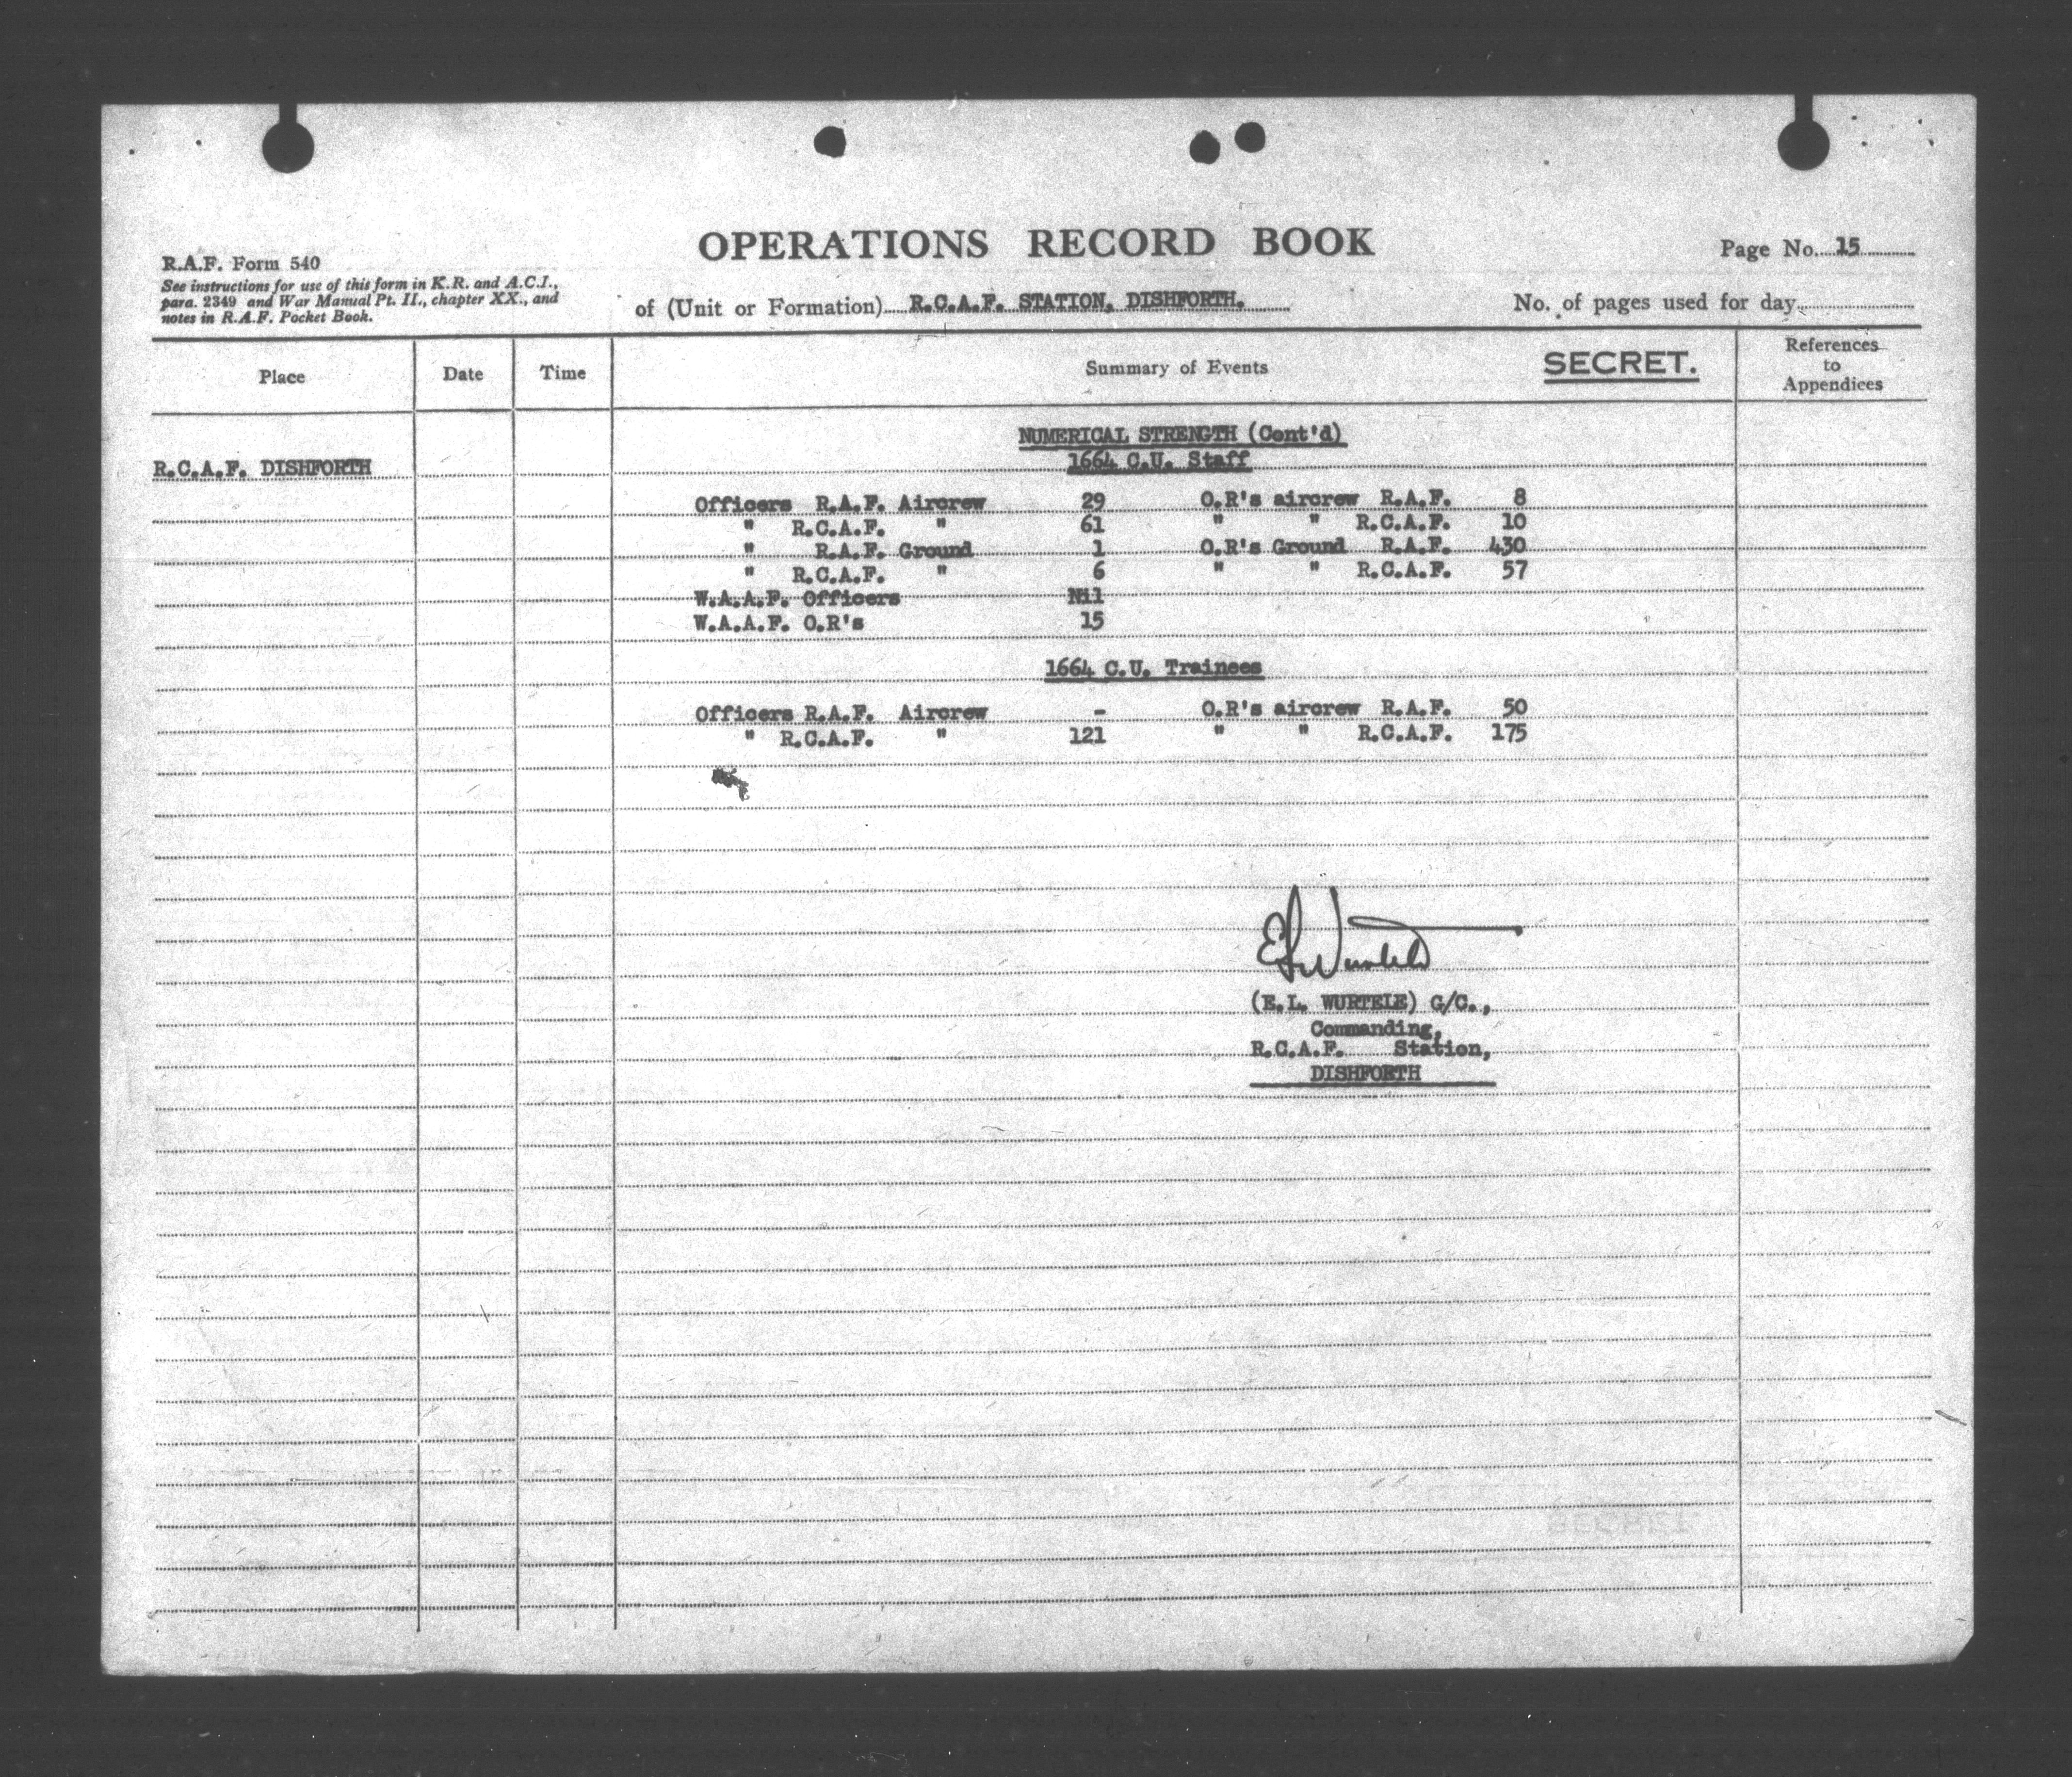 OPERATIONS RECORD BOOK
Page No. 15
R.A.F. Form 540
See instructions for use of this form in K.R. and A.C.I.,
para. 2349 and War Manual Pt. II., chapter XX., and
notes in R.A.F. Pocket Book.
of (Unit or Formation) R.C.A.F. STATION, DISHFORTH.
No. of pages used for day
Place Date Time Summary of Events SECRET. References to Appendices
NUMERICAL STRENGTH (Cont'd)
R.C.A.F. DISHFORTH 1664 C.U. Staff
Officers R.A.F. Aircrew 29 O.R's aircrew R.A.F. 8
" R.C.A.F. " 61 " " R.C.A.F. 10
" R.A.F. Ground 1 O.R's Ground R.A.F. 430
" R.C.A.F. " 6 " " R.C.A.F. 57
W.A.A.F. Officers Nil
W.A.A.F. O.R's 15
1664 C.U. Trainees
Officers R.A.F. Aircrew - O.R's aircrew R.A.F. 50
" R.C.A.F. " 121 " " R.C.A.F. 175
E L Wurtele
(E.L. WURTELE) G/C.,
Commanding,
R.C.A.F. Station,
DISHFORTH